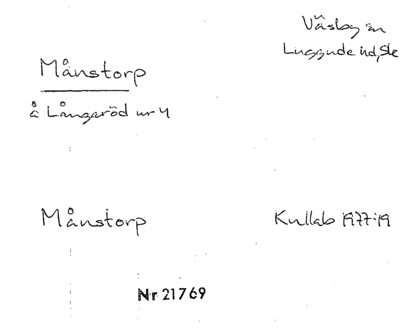 Väsby sn
Luggude hd, Sk
Månstorp
å Långaröd nr 4
Månstorp
Kullab 1977:19
Nr 21769